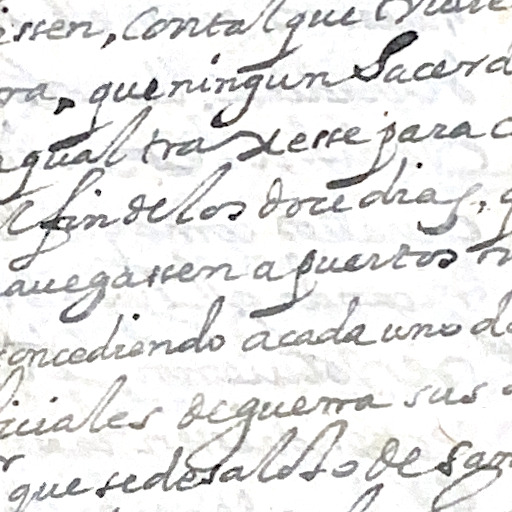 issen, Contal que
ra, que ningun Sacerd
qual traxesse para c
fin de los doce dias, q
auegassen a puertos
oncediendo a cada uno d
iciales de guerra sus
que se des